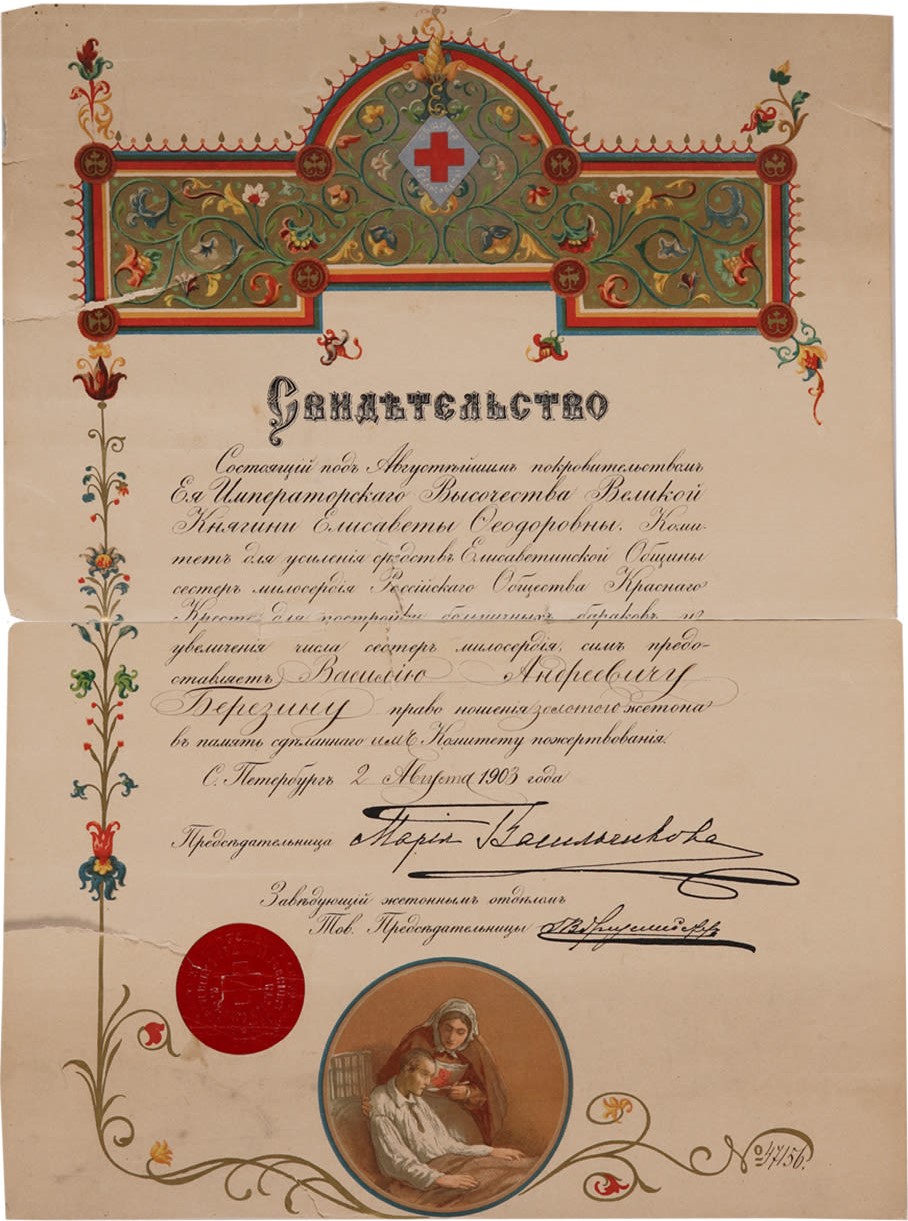 Свидѣтельство
Состоящій подъ Августѣйшимъ покровительствомъ
Ея Императорскаго Высочества Великой
Княгини Елисаветы Ѳеодоровны, Коми-
тетъ для усиленія средствъ Елисаветинской Общины
сестеръ милосердія Россійскаго Общества Краснаго
Креста для постройки больничныхъ бараковъ и
увеличенія числа сестеръ милосердія, симъ предо-
ставляетъ Василію Андреевичу
Березину право ношенія золотого жетона
въ память сдѣланнаго имъ Комитету пожертвованія.
С. Петербургъ 2 Августа 1903 года
Предсѣдательница Марія Васильчикова
Завѣдующій жетоннымъ отдѣломъ
Тов. Предсѣдательницы
№ 47156.